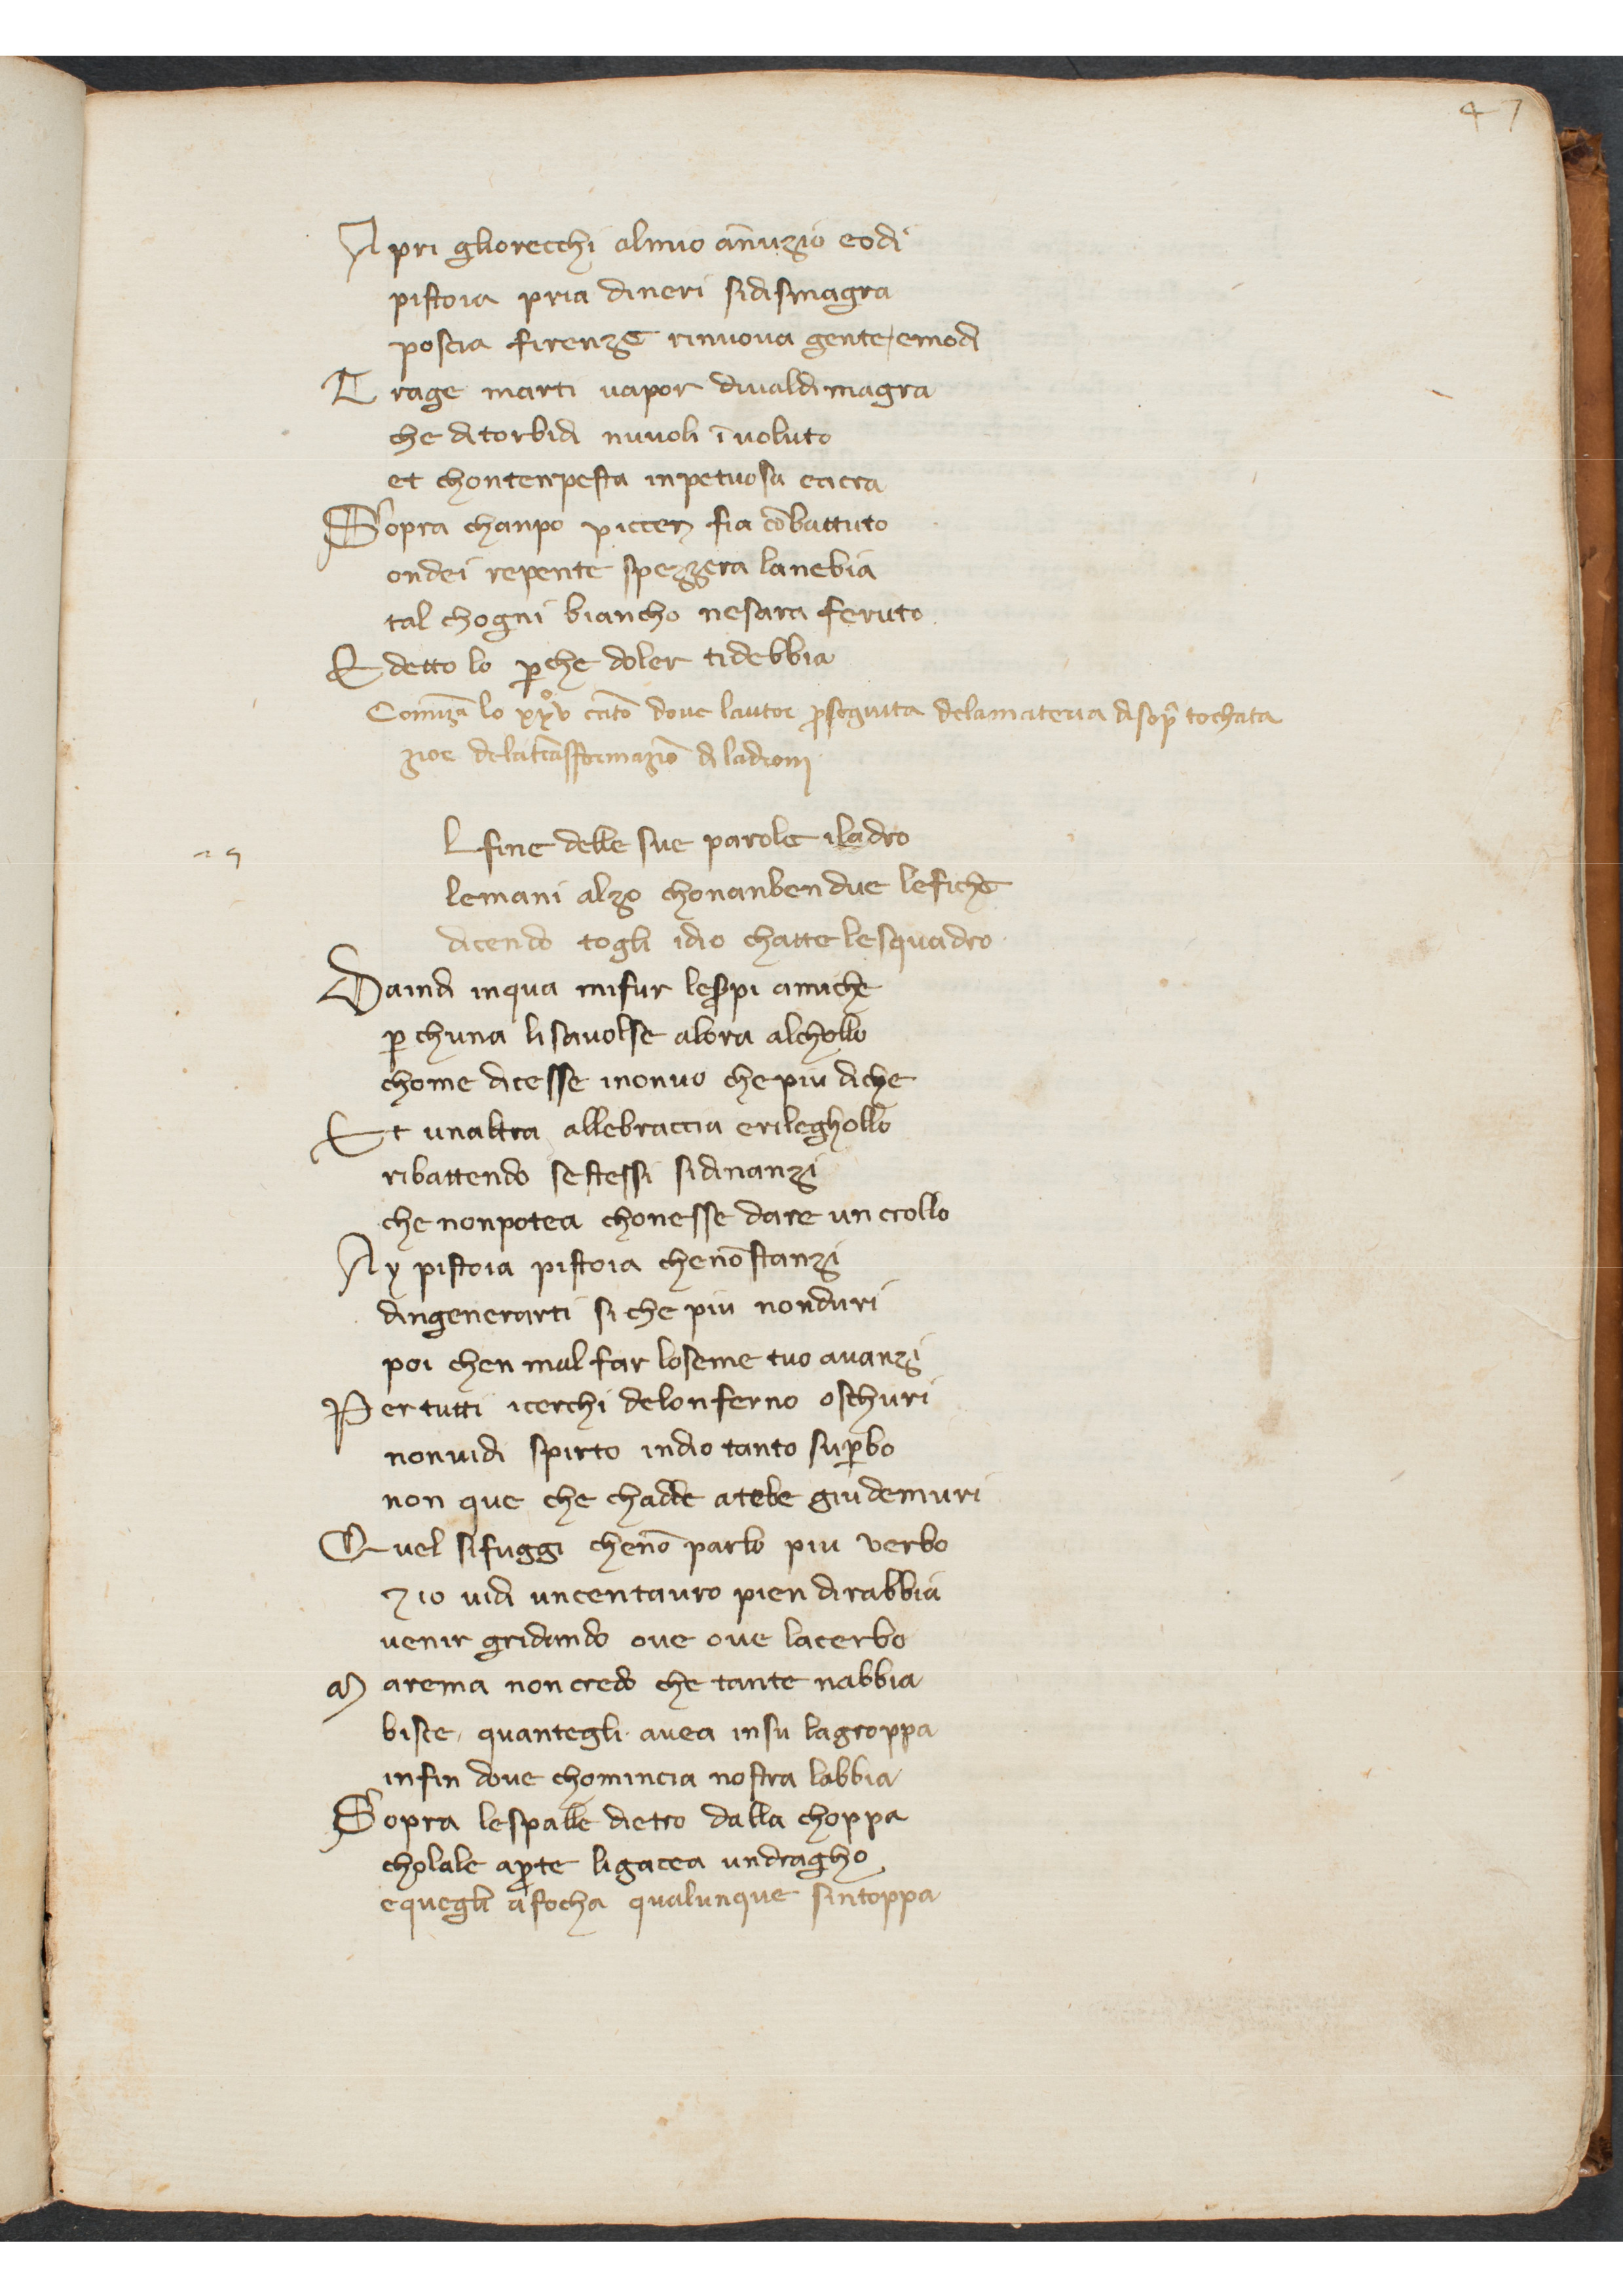 47
Apri gliorecchi almio an̄uzio eodi
pistoia pria dineri sidismagra
poscia firenze rinuova gente emodi
Trage marti vapor divaldimagra
che ditorbidi nuvoli ī voluto
et chontenpesta inpetuosa eacra
Sopra chanpo piccen fia cōbattuto
ondei repente spezzera lanebia
tal chogni biancho nesara feruto
E detto lo ꝑche doler tidebbia
Comīza lo xxv° cāto doue lautor ꝓseguita delamateria disopͣ tochata
zioe delatrāsformazio᷒ di ladroni
25
L fine delle sue parole iladro
lemani alzo chonanbendue lefiche
dicendo togli idio chatte lesquadro
Daindi inqua mifur leserpi amiche
ꝑ chuna lisavolse alora alchollo
chome dicesse inonuo che piu diche
Et unaltra allebraccia erileghollo
ribattendo sestessi sidinanzi
che nonpotea chonesse dare un crollo
Ay pistoia pistoia chenōstanzi
dingenerarti si che piu nonduri
poi chen mal far loseme tuo avanzi
Per tutti icerchi delonferno oschuri
nonuidi spirto indio tanto suꝑbo
non que che chadde atebe giu demuri
Quel sifuggi chenō parlo piu verbo
7 io uidi uncentauro pien dirabbia
uenir gridando oue oue lacerbo
Marema non credo che tante nabbia
bisce quantegli avea insu lagroppa
infin doue chomincia nostra labbia
Sopra lespalle dietro dalla choppa
cholale aꝑte ligacea undragho
equegli afocha qualunque sintoppa